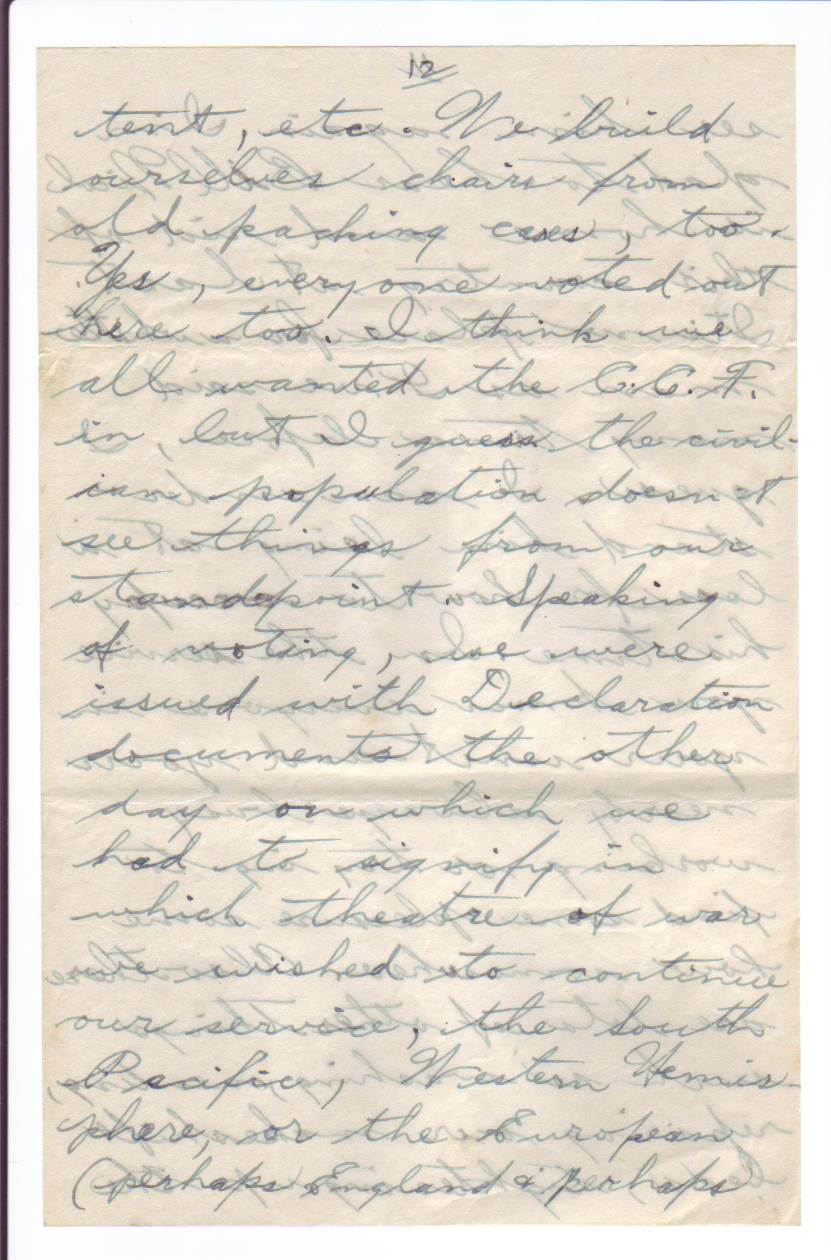 12
tent, etc. We build
ourselves chairs from
old packing cases, too.
Yes, everyone voted out
here too. I think we
all wanted the C.C.F.
in, but I guess the civil-
ian population doesn't
see things from our
standpoint. Speaking
of voting, we were
issued with Declaration
documents the other
day on which we
had to signify in
which theatre of war
we wished to continue
our service, the South
Pacific, Western Hemis-
phere, or the European
(perhaps England & perhaps